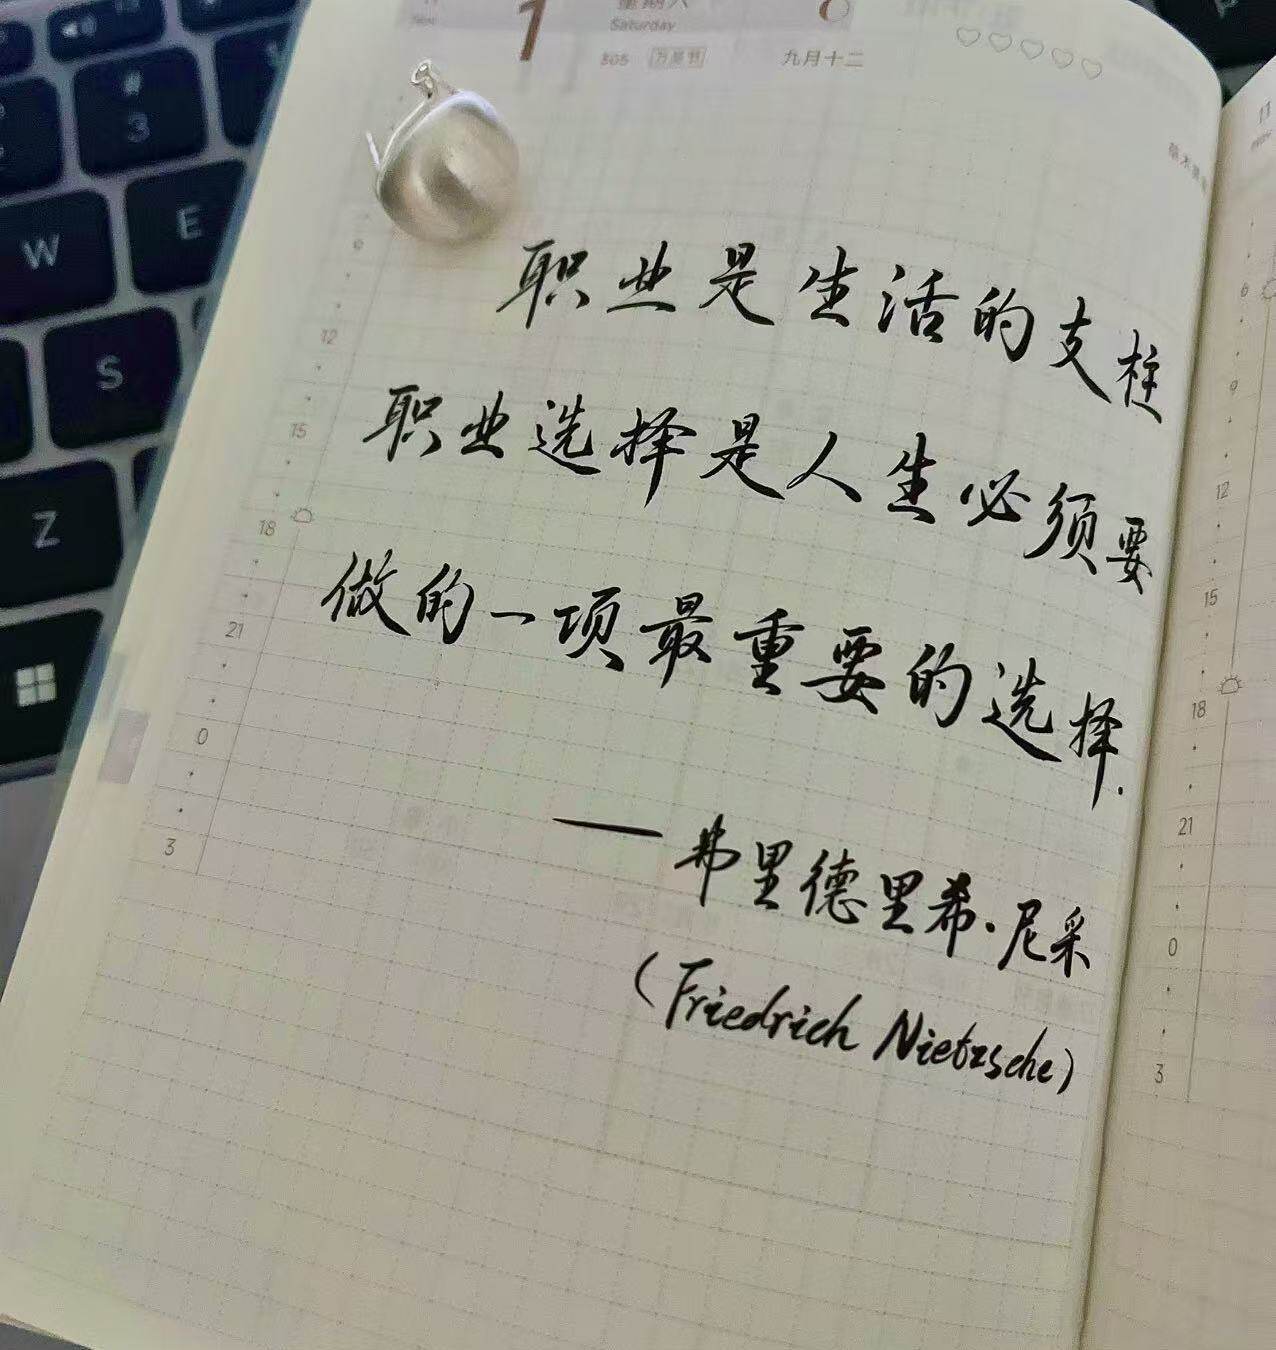 11
Nov
1
星期六
Saturday
305 万圣节
九月十二
9
12
15
18
21
0
3
职业是生活的支柱
职业选择是人生必须要
做的一项最重要的选择.
——弗里德里希·尼采
(Friedrich Nietzsche)
11
6
9
12
15
18
21
0
3
#
3
W
E
S
Z